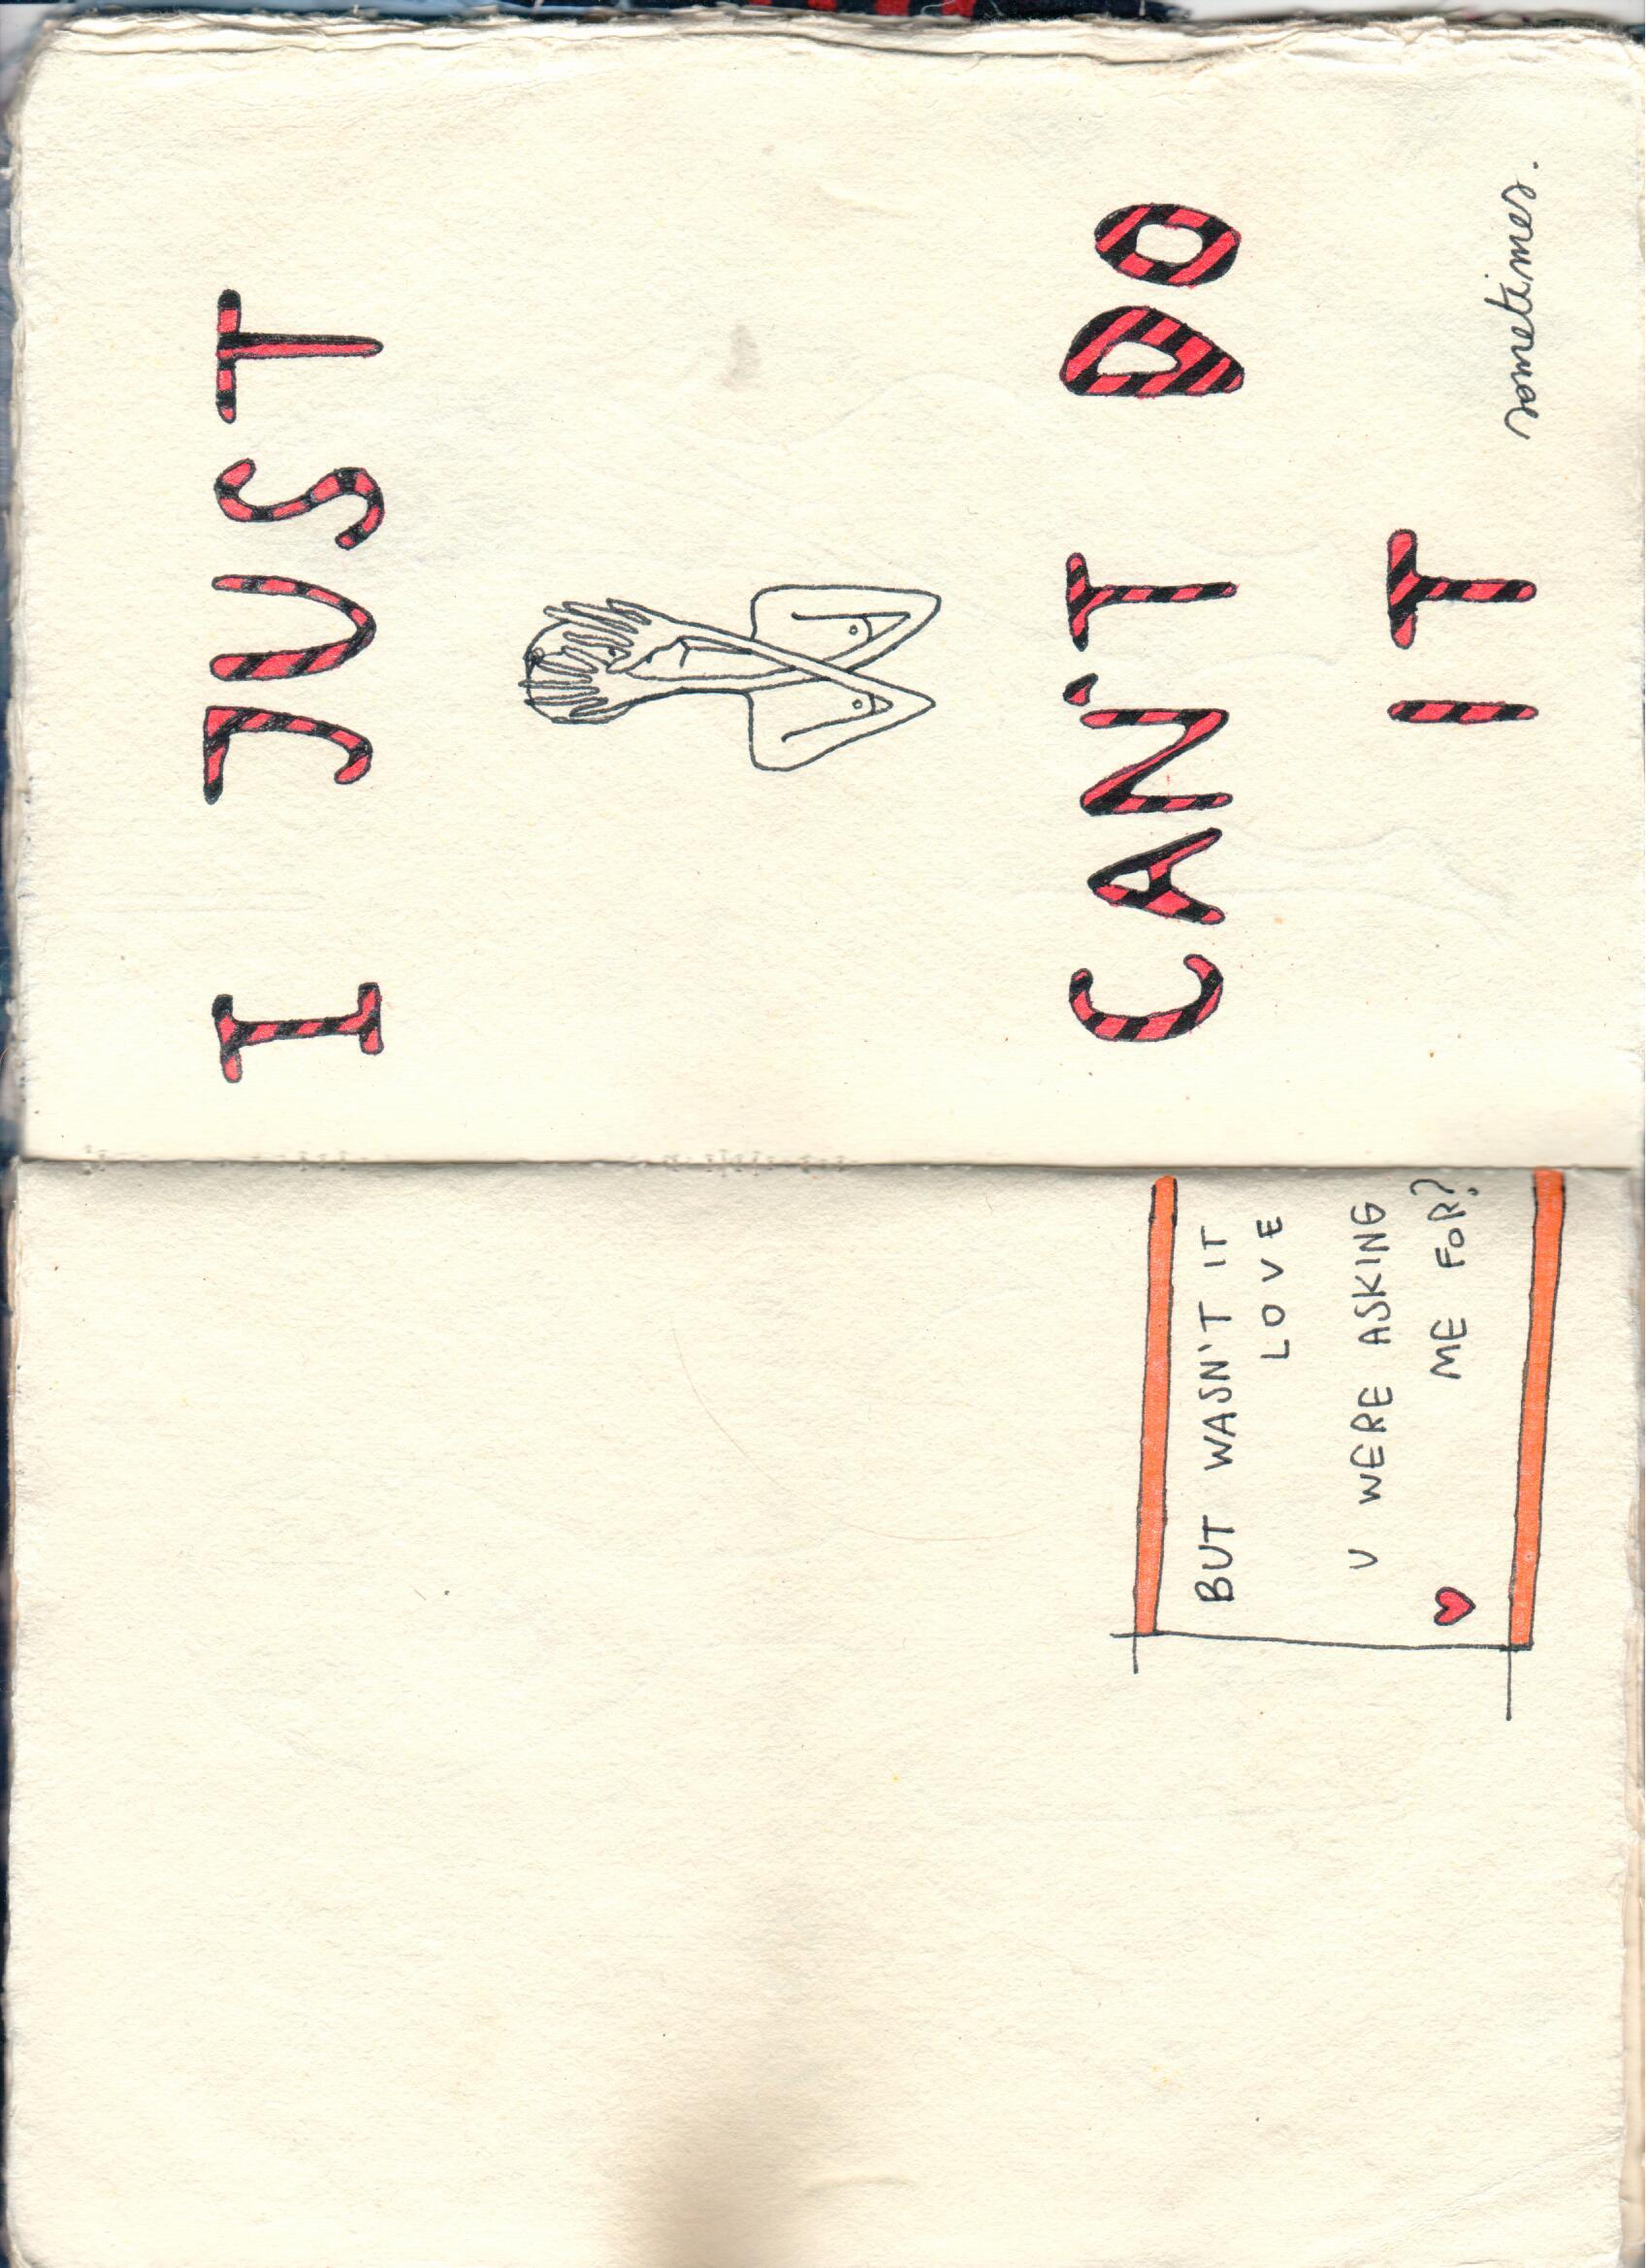 BUT WASN'T IT
LOVE
U WERE ASKING
ME FOR?
I JUST
CAN'T DO
IT
sometimes.